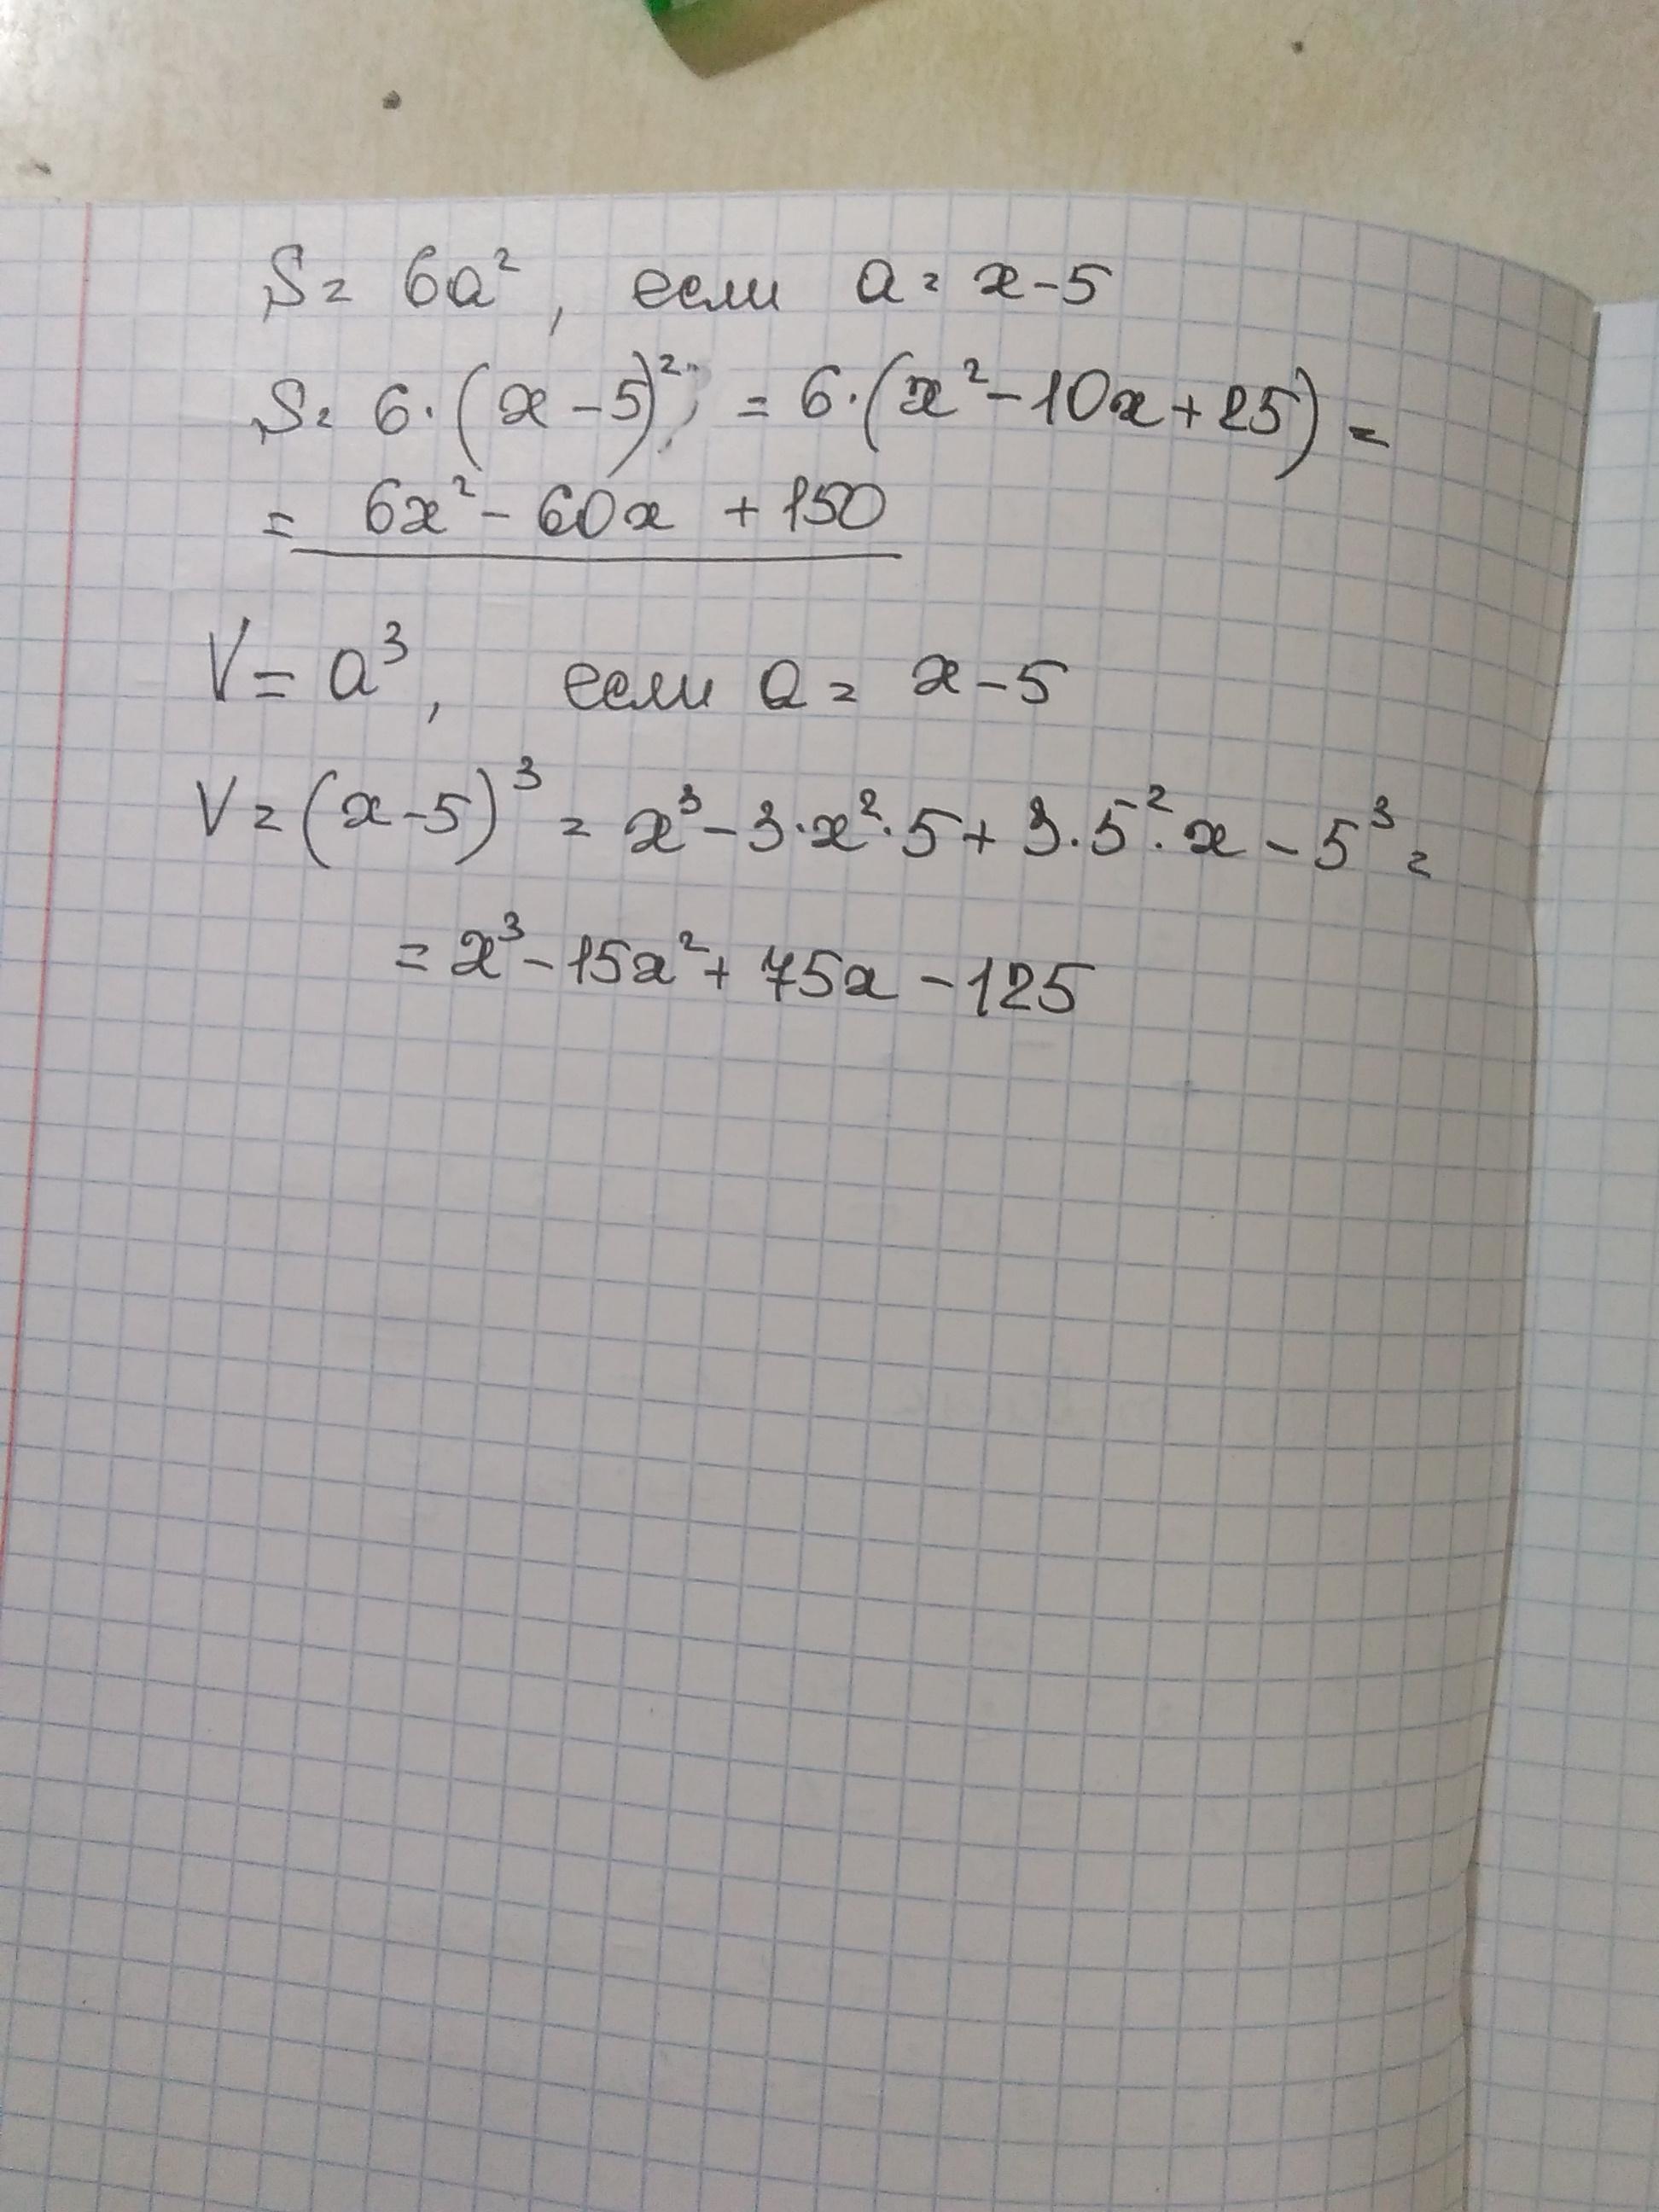 S = 6a², если a = x-5
S = 6·(x-5)² = 6·(x²-10x+25) =
= 6x²-60x +150
V = a³, если a = x-5
V = (x-5)³ = x³-3·x²·5+3·5²·x-5³ =
= x³-15x²+75x-125